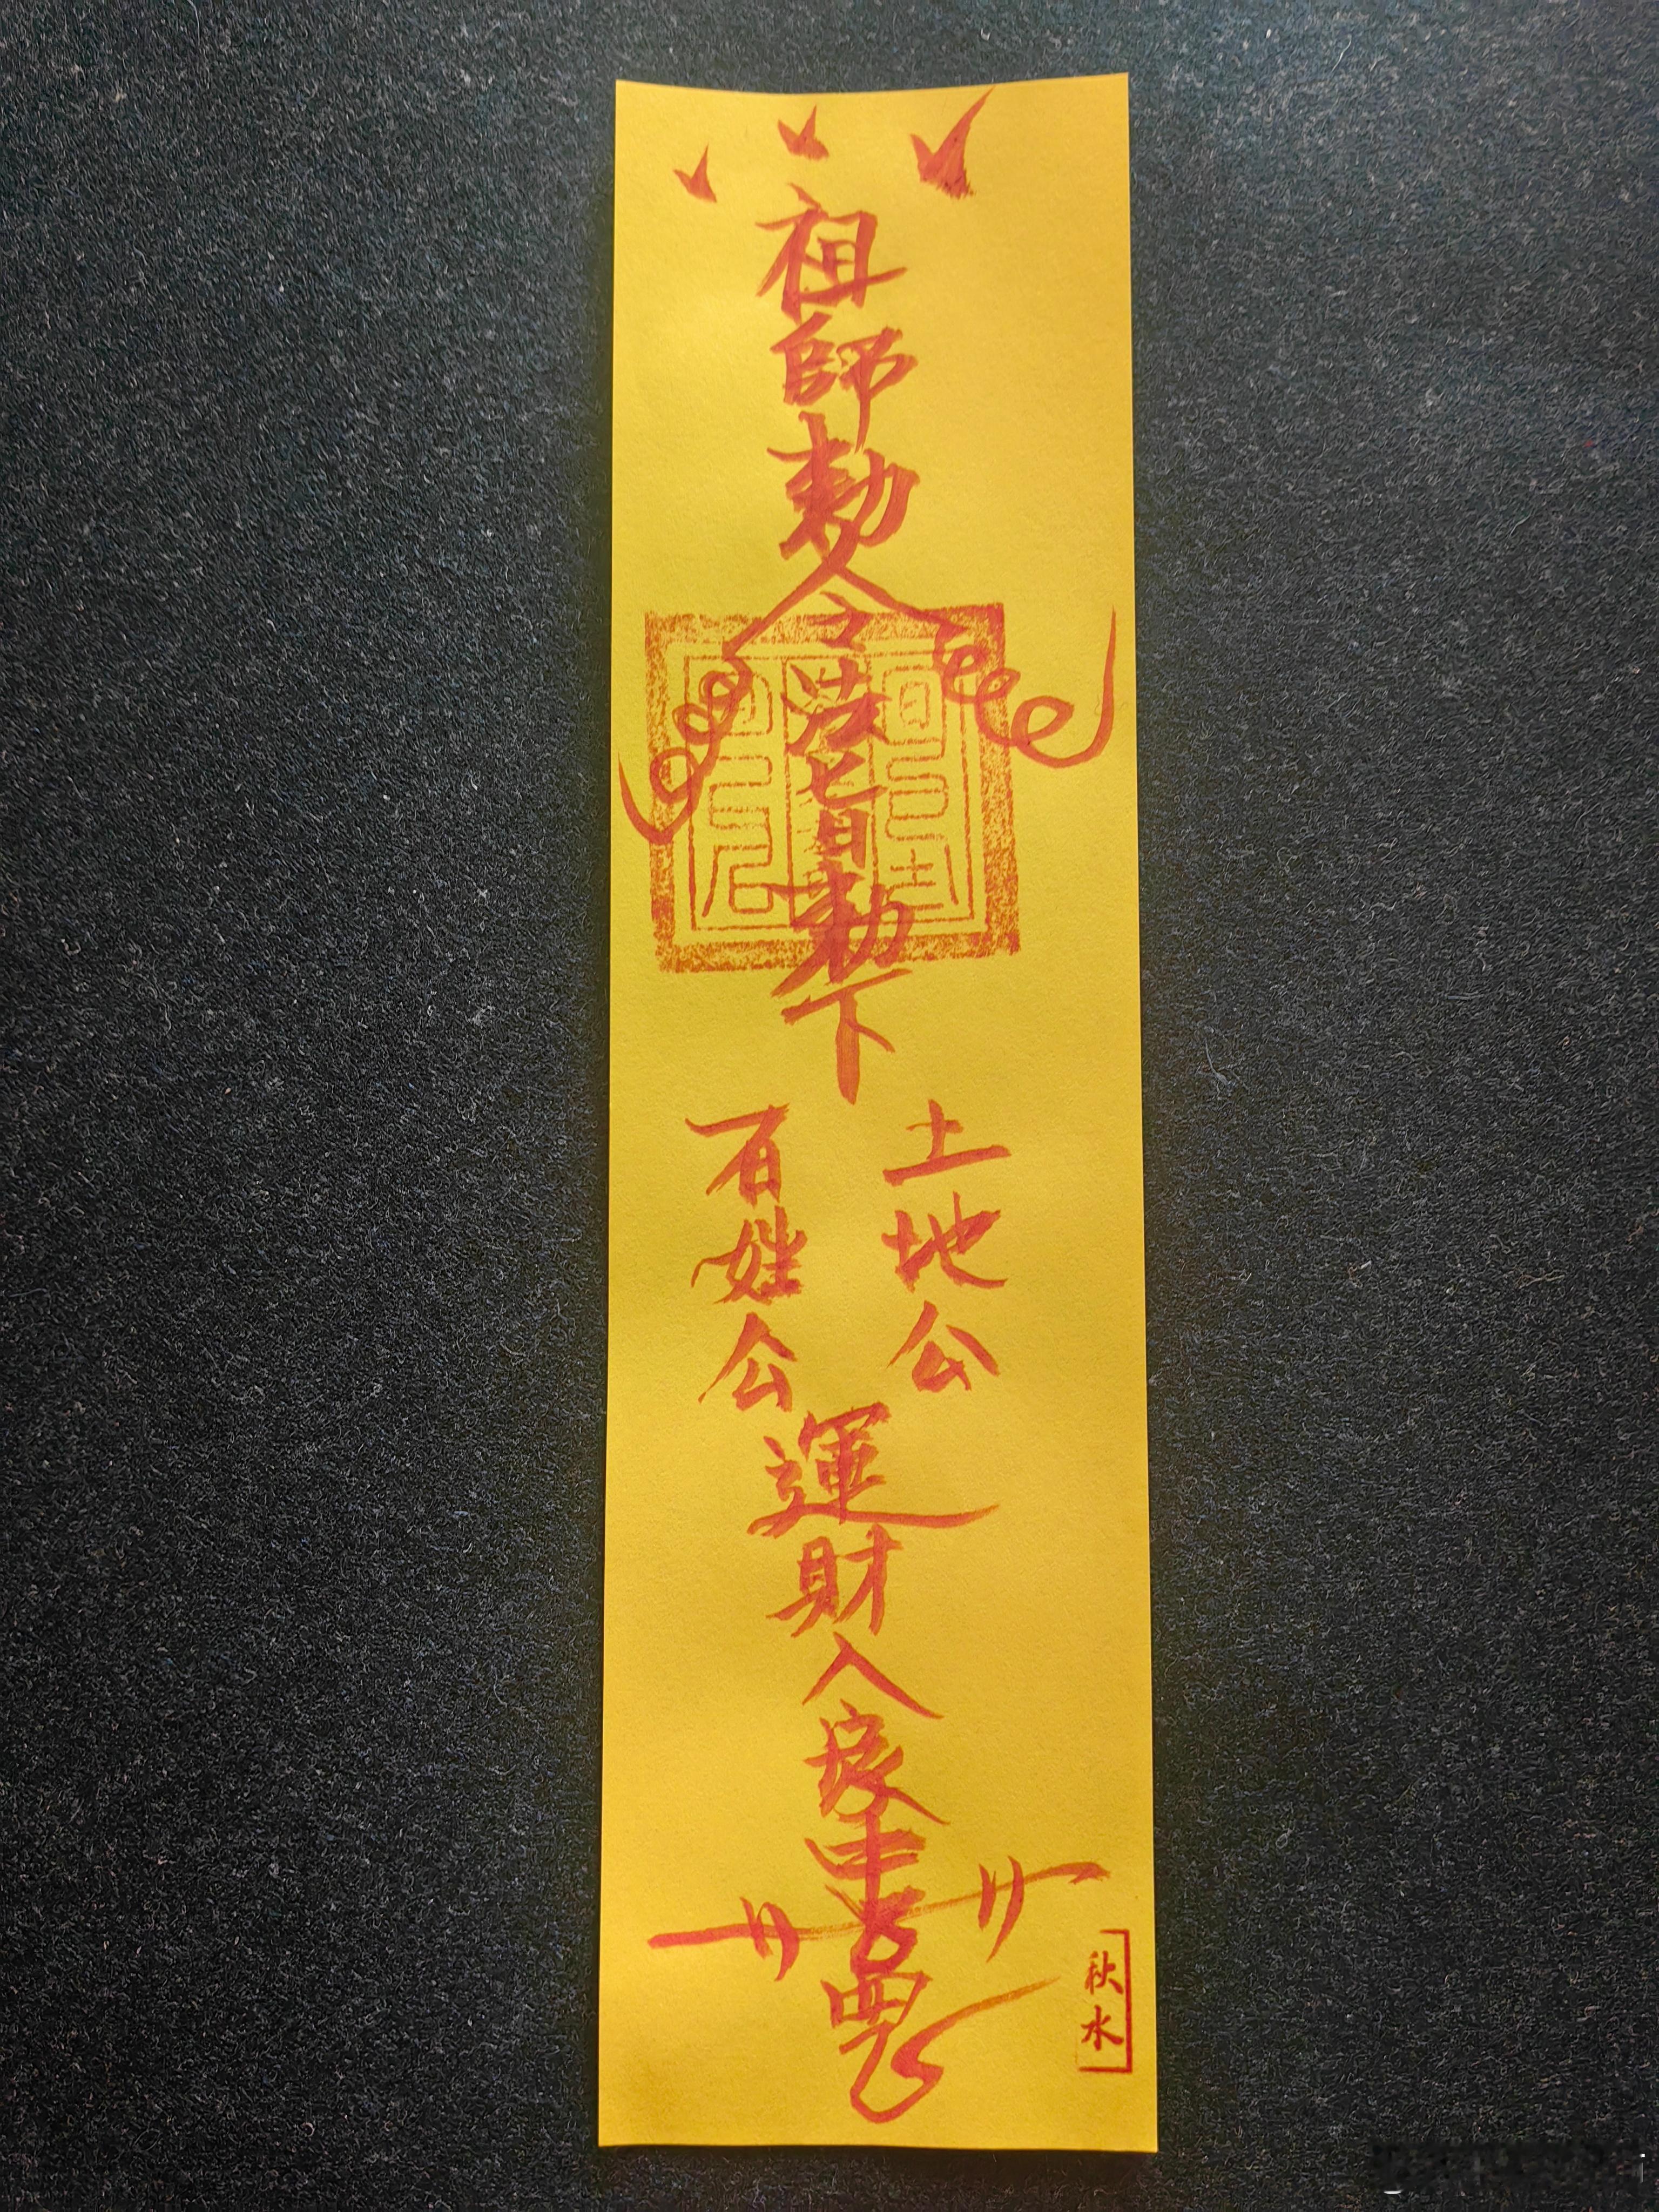 祖師勅令法旨勅下
土地公
百姓公
運財入家中
秋水